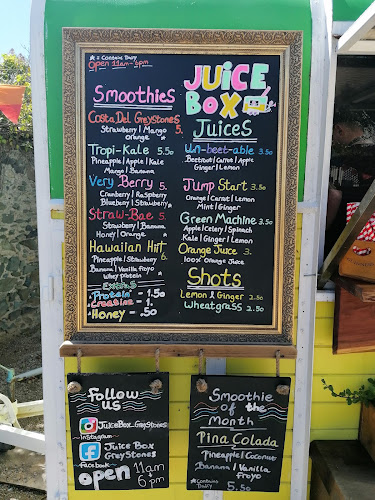 * = Contains Dairy
Open 11am-6pm
JUICE
BOX
Smoothies
Costa Del Greystones
5.
Strawberry | Mango
Orange *
Tropi-Kale 5.50
Pineapple | Apple | Kale
Mango | Banana
Very Berry 5.
Cranberry | Raspberry
Blueberry | Strawberry *
Straw-Bae 5.
Strawberry | Banana
Honey | Orange *
Hawaiian Hiit
6.
Pineapple | Strawberry
Banana | Vanilla froyo
Whey protein *
Extras
Protein - 1.50
Creatine - 1.
Honey - .50
Juices
Un-beet-able 3.50
Beetroot | Carrot | Apple
Ginger | Lemon
Jump Start 3.50
Orange | Carrot | Lemon
Mint | Ginger
Green Machine 3.50
Apple | Celery | Spinach
Kale | Ginger | Lemon
Orange Juice 3.
100% Orange Juice
Shots
Lemon & Ginger 2.50
Wheatgrass 2.50
Follow
us
JuiceBox-Greystones
Instagram
Juice Box
Greystones
Facebook
open 11am
- 6pm
Smoothie
of the
Month
Pina Colada
Pineapple | Coconut
Banana | Vanilla
Froyo *
*Contains
Dairy
5.50